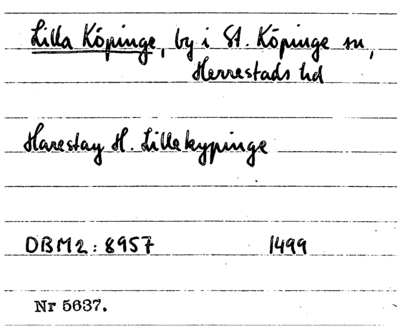 Lilla Köpinge, by i St. Köpinge sn,
Herrestads hd
Harestay H. Lillekypinge
DBM2: 8957 1499
Nr 5637.